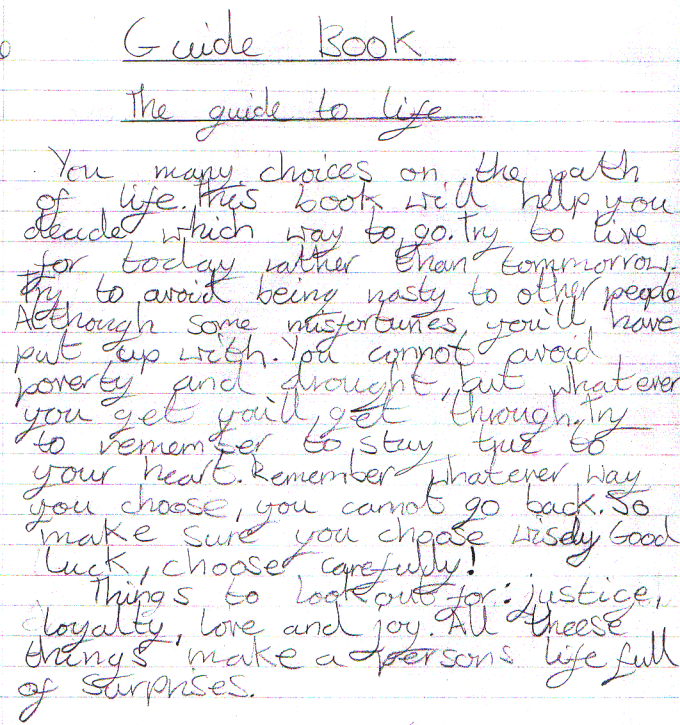 Guide Book
The guide to life
You many choices on the path
of life. This book will help you
decide which way to go. Try to live
for today rather than tommorrow.
Try to avoid being nasty to other people
Although some misfortunes, you'll have
put up with. You cannot avoid
poverty and drought, but whatever
you get you'll get through. Try
to rememser to stay true to
your heart. Remember whatever way
you choose, you cannot go back. So
make sure you choose wisely Good
luck, choose carefully!
Things to look out for: justice,
loyalty, love and joy. All theese
things make a persons life full
of surprises.